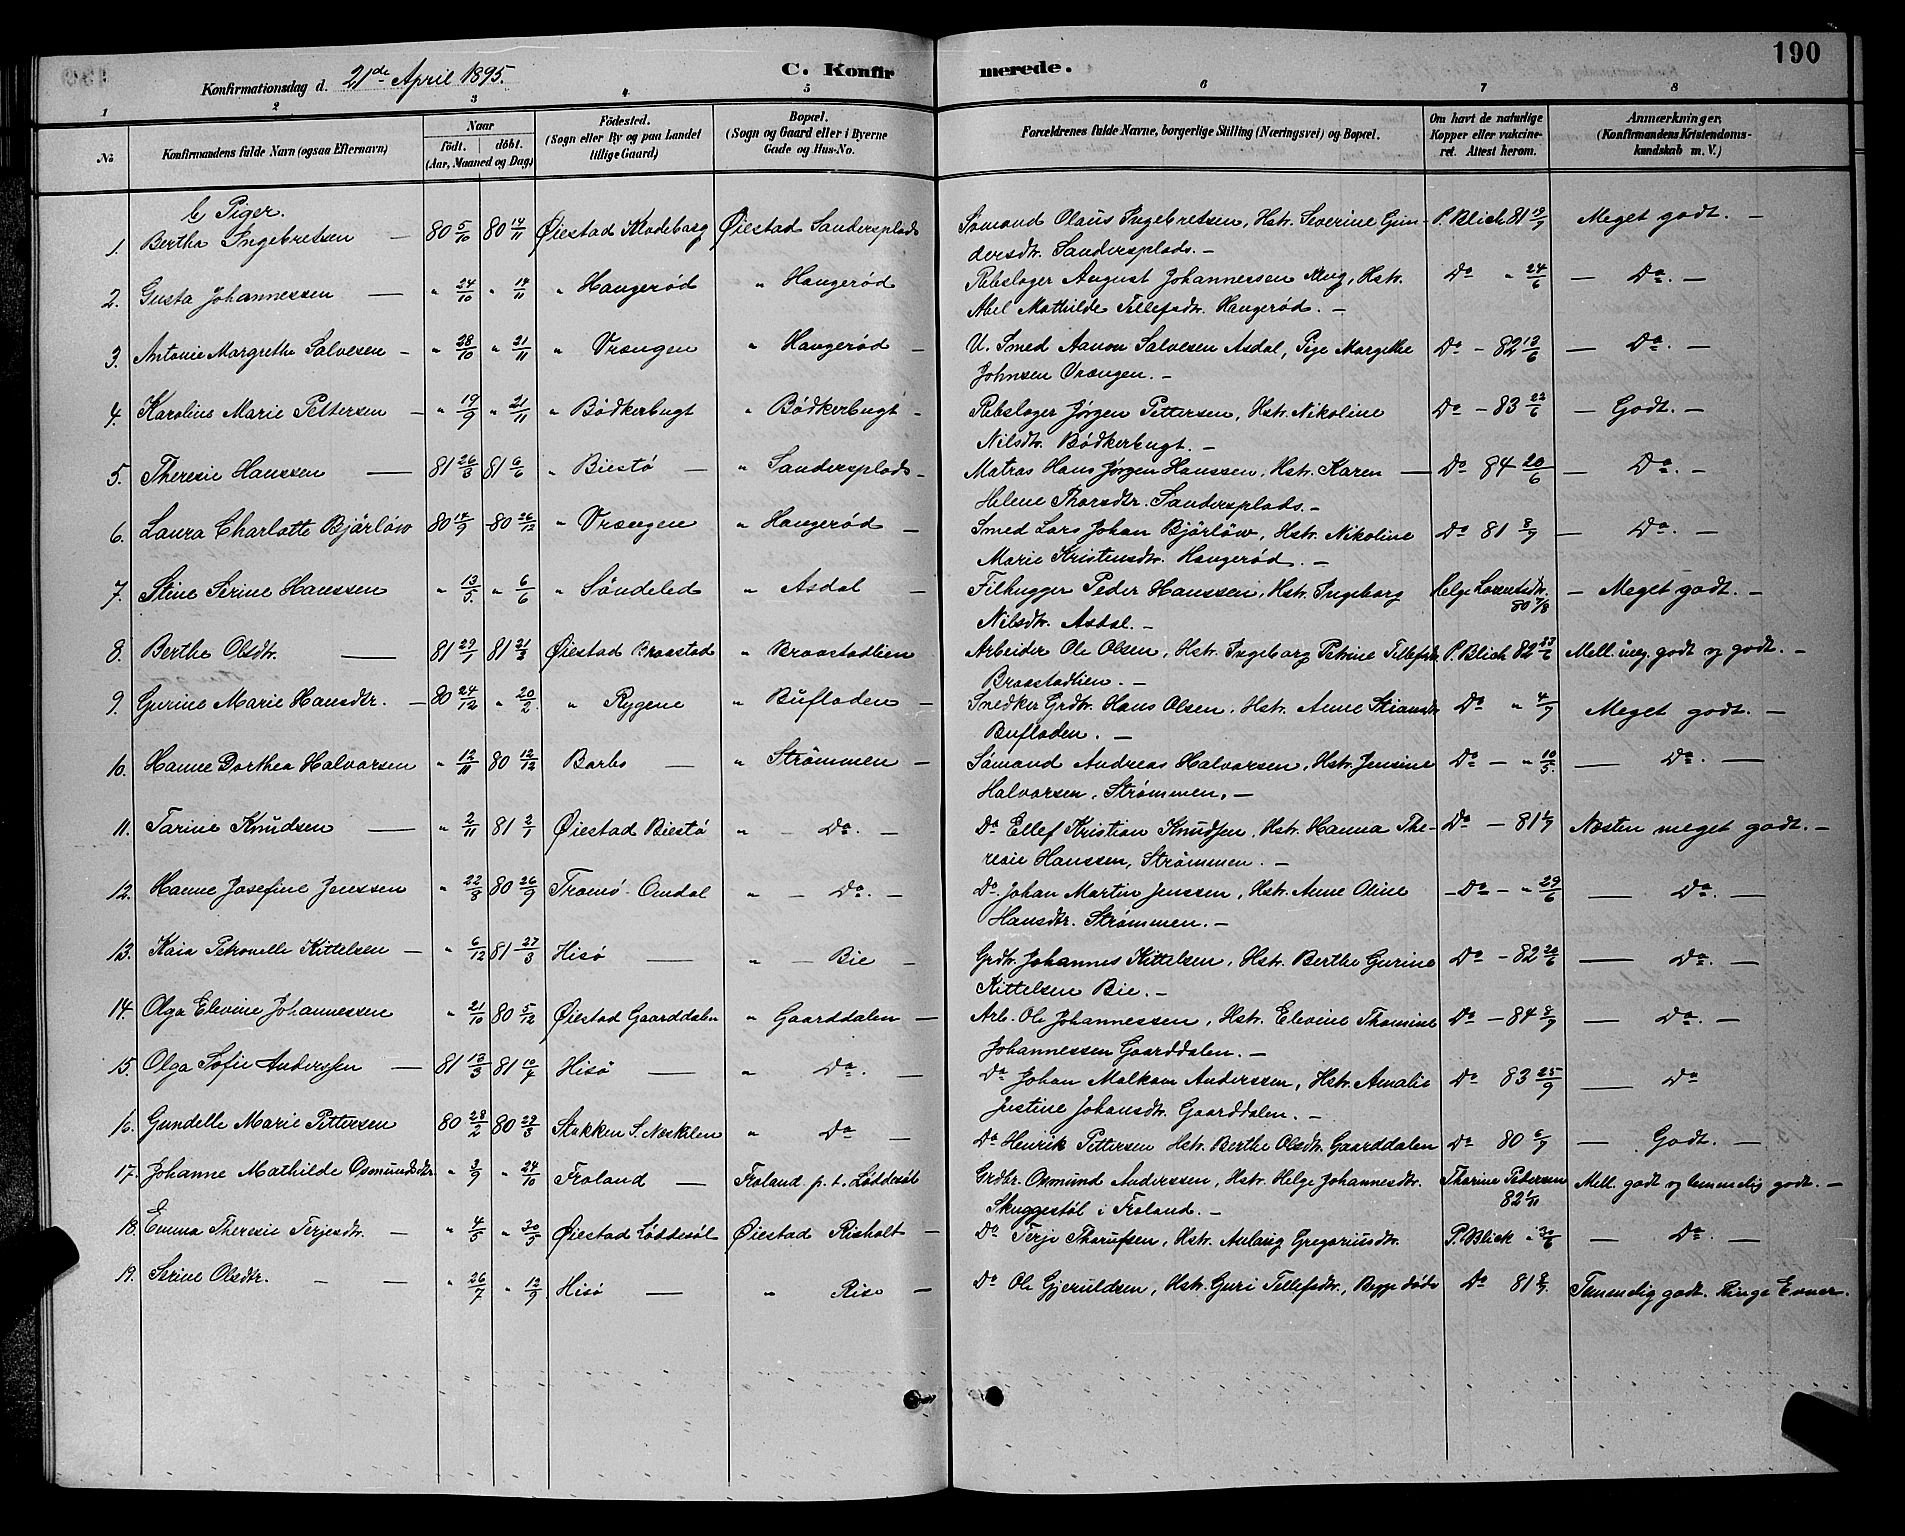 190
Konfirmationsdag d. 21de April 1895.
C. Konfirmerede.
1 2 3 4 5 6 7 8
No
Konfirmandens fulde Navn (ogsaa Efternavn)
Naar
født. døbt.
(Aar, Maaned og Dag)
Fødested.
(Sogn eller By og paa Landet
tillige Gaard)
Bopæl.
(Sogn og Gaard eller i Byerne
Gade og Hus-No.
Forældrenes fulde Navne, borgerlige Stilling (Næringsvei) og Bopæl.
Om havt de naturlige
Kopper eller vakcine-
ret. Attest herom.
Anmærkninger,
(Konfirmandens Kristendoms-
kundskab m. V.)
b Piger.
1. Bertha Ingebretsen — 80 5/10 80 14/11 Øiestad Klodeborg Øiestad Sandersplads Sømand Olaus Ingebretsen, Hstr. Severine Gun- P. Blich 81 19/9 Meget godt. —
dersdtr. Sandersplads. —
2. Gusta Johannessen — " 24/10 " 14/11 " Haugerød " Haugerød Rebslager August Johannessen Aug, Hstr. Do " 24/6 — Do. —
Abel Mathilde Tellefsdtr. Haugerød. —
3. Antonie Margrethe Salvesen — " 28/10 " 21/11 " Vrængen " Haugerød — U. Smed Aanon Salvesen Asdal, Pige Margethe Do — 82 13/6 — Do. —
Johnsen Vrængen. —
4. Karoline Marie Pettersen — " 19/9 " 21/11 " Bødkerbugt " Bødkerbugt — Rebslager Jørgen Pettersen, Hstr. Nikoline Do — 83 22/6 — Godt. —
Nilsdtr. Bødkerbugt. —
5. Theresie Hanssen — 81 26/3 81 6/6 " Biestø — " Sandersplads — Matros Hans Jørgen Hanssen, Hstr. Karen — Do 84 20/6 — Do. —
Helene Thorsdtr. Sandersplads. —
6. Laura Charlotte Bjärlöw 80 14/9 80 26/12 " Vrængen " Haugerød — Smed Lars Johan Bjärlöw, Hstr. Nikoline Do 81 8/9 — Do. —
Marie Kristensdtr. Haugerød. —
7. Stine Serine Hanssen " 13/5 " 6/6 " Søndeled " Asdal — Filhugger Peder Hanssen, Hstr. Ingeborg Helge Lorentsdtr. — Meget godt. —
Nilsdtr. Asdal. — 80 7/8
8. Berthe Olsdtr. — 81 29/1 81 21/3 Øiestad Braastad " Braastadlien Arbeider Ole Olsen, Hstr. Ingeborg Petrine Tellefsdtr. P. Blich 82 23/6 Mell. meg. godt og godt. —
Braastadlien. —
9. Gurine Marie Hansdtr. — 80 24/12 " 20/2 " Rygene " Bufladen — Snedker Grdbr. Hans Olsen, Hstr. Anne Stiansdtr. Do " 4/9 Meget godt. —
Bufladen. —
10. Hanne Dorthea Halvorsen " 12/11 80 12/12 Barbo — " Strømmen — Sømand Andreas Halvorsen, Hstr. Jensine Do — " 10/5 — Do. —
Halvorsen, Strømmen, —
11. Tarine Knudsen — " 2/11 81 2/1 Øiestad Biestø " — Do. — Do Ellef Kristian Knudsen, Hstr. Hanna The- Do — 81 6/9 Næsten meget godt. —
resie Hanssen, Strømmen. —
12. Hanne Josefine Jenssen " 22/8 80 26/9 Tromø Omdal " — Do. — Do. Johan Martin Jenssen, Hstr. Anne Oline — Do — " 29/6 — Do. —
Hansdtr. Strømmen. —
13. Kaia Petronelle Kittelsen — " 6/12 81 27/3 Hisø — " — Bie — Grdbr. Johannes Kittelsen, Hstr. Berthe Gurine Do — 82 20/6 — Do. —
Kittelsen Bie. —
14. Olga Elevine Johannessen " 21/10 80 5/12 Øiestad Gaarddalen " Gaarddalen — Arb. Ole Johannessen, Hstr. Elevine Thomine Do — 84 8/9 — Do. —
Johannessen Gaarddalen. —
15. Olga Sofie Anderssen — 81 13/3 81 10/4 Hisø — " Do. — Do Johan Malkom Anderssen, Hstr. Amalie Do 83 25/9 — Do
Justine Johansdtr. Gaarddalen. —
16. Gundelle Marie Pettersen 80 28/2 80 29/3 Stokken S. Næskilen " Do — Do Henrik Pettersen Hstr. Berthe Olsdtr. Gaarddalen Do 80 6/9 — Godt. —
17. Johanne Mathilde Osmundsdtr. " 3/9 " 24/10 Froland — Froland p. t. Løddesøl Grdbr. Osmund Anderssen, Hstr. Helge Johannesdtr. Tharine Pedersen Mell. godt og temmelig godt. —
Skuggestøl i Froland. — 82 6/11
18. Emma Theresie Terjesdtr. — " 4/5 " 30/5 Øiestad Løddesøl Øiestad Risholt — Do Terje Thorufsen, Hstr. Aslaug Gregoriusdtr. P. Blich " 30/6 — Do. —
19. Serine Olsdtr. — — " 26/7 " 12/9 Hisø — " Rise — Do Ole Gjeruldsen, Hstr. Guri Tellefsdtr., Begge døde Do 81 8/9. Temmelig godt. Ringe Evner.